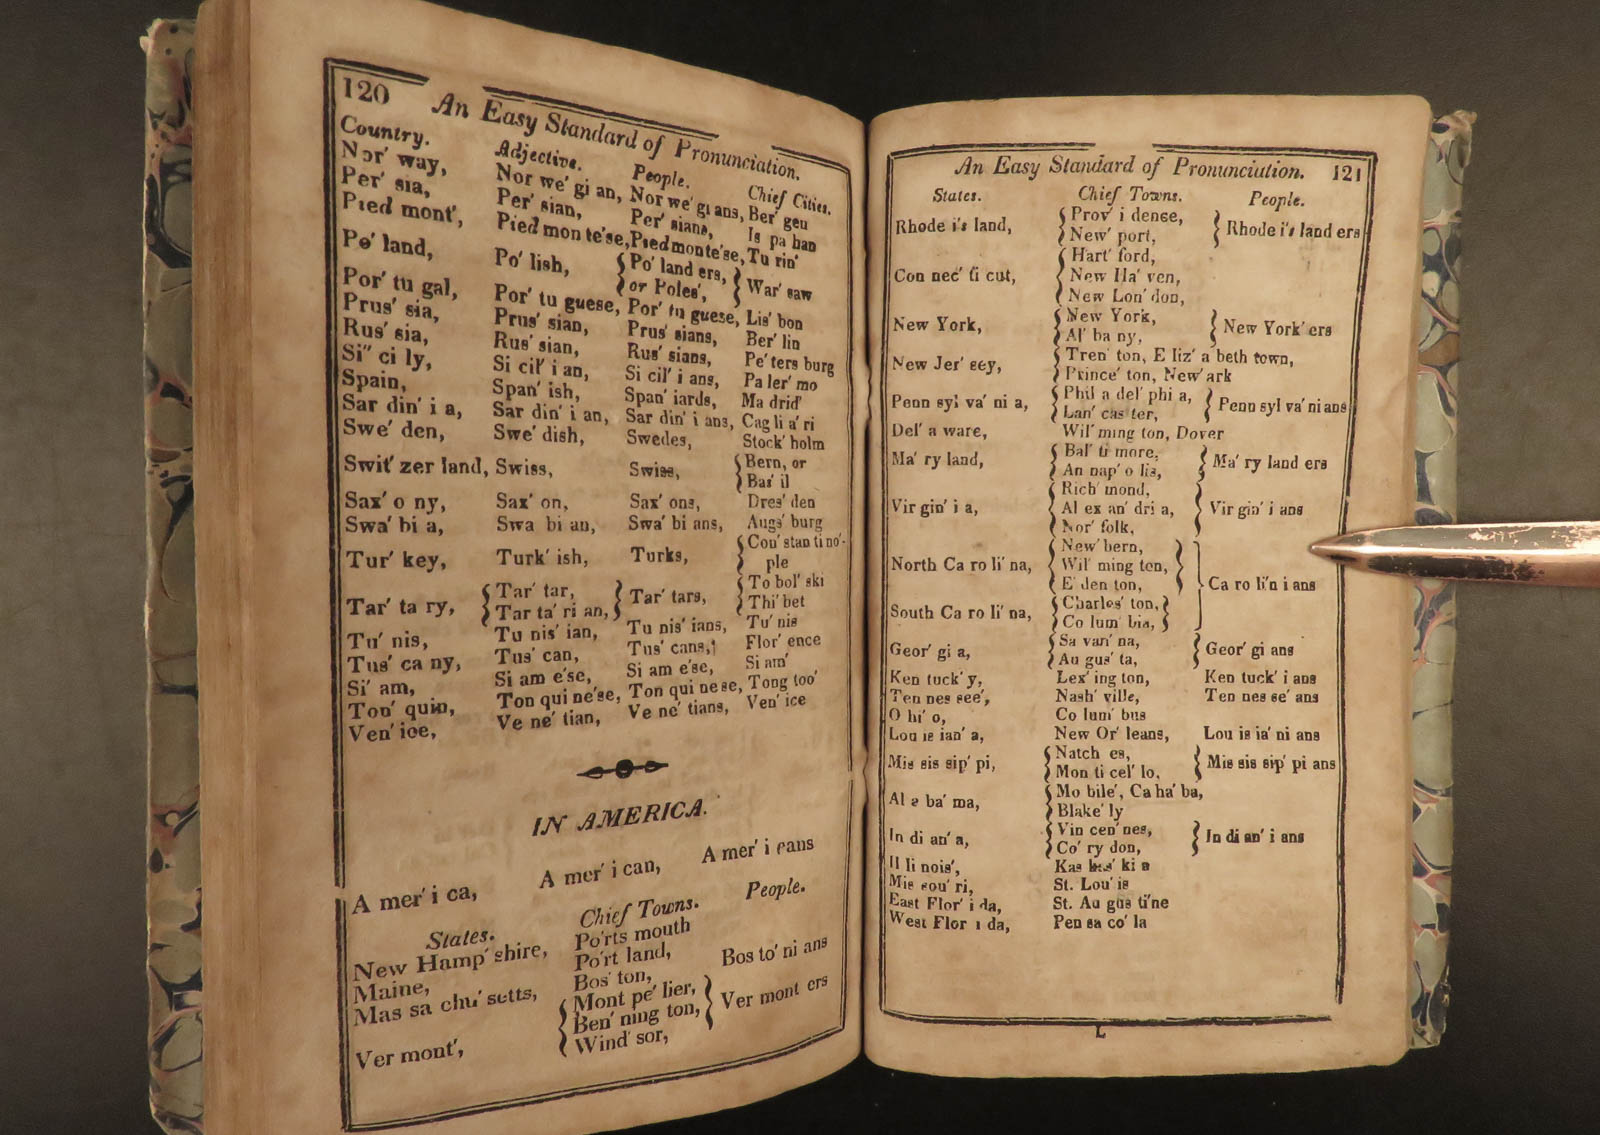 120 An Easy Standard of Pronunciation.
Country. Adjective. People. Chief Cities.
Nor' way, Nor we' gi an, Nor we' gi ans, Ber' geu
Per' sia, Per' sian, Per' sians, Is pa han
Pied mont', Pied mon te'se, Pied monte'se, Tu rin'
Po' land, Po' lish, { Po' land ers, or Poles', } War' saw
Por' tu gal, Por' tu guese, Por' tu guese, Lis' bon
Prus' sia, Prus' sian, Prus' sians, Ber' lin
Rus' sia, Rus' sian, Rus' sians, Pe' ters burg
Si'' ci ly, Si cil' i an, Si cil' i ans, Pa ler' mo
Spain, Span' ish, Span' iards, Ma drid'
Sar din' i a, Sar din' i an, Sar din' i ans, Cag li a' ri
Swe' den, Swe' dish, Swedes, Stock' holm
Swit' zer land, Swiss, Swiss, { Bern, or Bas' il
Sax' o ny, Sax' on, Sax' ons, Dres' den
Swa' bi a, Swa bi an, Swa' bi ans, Augs' burg
Tur' key, Turk' ish, Turks, { Con' stan ti no'- ple
Tar' ta ry, { Tar' tar, Tar ta' ri an, } Tar' tars, { To bol' ski Thi' bet
Tu' nis, Tu nis' ian, Tu nis' ians, Tu' nis
Tus' ca ny, Tus' can, Tus' cans, Flor' ence
Si' am, Si am e'se, Si am e'se, Si am'
Ton' quin, Ton qui ne'se, Ton qui ne se, Tong too'
Ven' ice, Ve ne' tian, Ve ne' tians, Ven' ice
IN AMERICA.
A mer' i ca, A mer' i can, A mer' i cans
States. Chief Towns. People.
New Hamp' shire, Po'rts mouth
Maine, Po'rt land,
Mas sa chu' setts, Bos' ton, Bos to' ni ans
Ver mont', { Mont pe' lier, Ben' ning ton, Wind' sor, } Ver mont ers
An Easy Standard of Pronunciation. 121
States. Chief Towns. People.
Rhode i's land, { Prov' i dense, New' port, } Rhode i's land ers
Con nec' ti cut, { Hart' ford, New Ha' ven, New Lon' don,
New York, { New York, Al' ba ny, } New York' ers
New Jer' sey, { Tren' ton, E liz' a beth town, Prince' ton, New' ark
Penn syl va' ni a, { Phil a del' phi a, Lan' cas ter, } Penn syl va' ni ans
Del' a ware, Wil' ming ton, Dover
Ma' ry land, { Bal' ti more, An nap' o lis, } Ma' ry land ers
Vir gin' i a, { Rich' mond, Al ex an' dri a, Nor' folk, } Vir gin' i ans
North Ca ro li' na, { New' bern, Wil' ming ton, E' den ton, }
South Ca ro li' na, { Charles' ton, Co lum' bia, } Ca ro li'n i ans
Geor' gi a, { Sa van' na, Au gus' ta, } Geor' gi ans
Ken tuck' y, Lex' ing ton, Ken tuck' i ans
Ten nes see', Nash' ville, Ten nes se' ans
O hi' o, Co lum' bus
Lou is ian' a, New Or' leans, Lou is ia' ni ans
Mis sis sip' pi, { Natch es, Mon ti cel' lo, } Mis sis sip' pi ans
Al a ba' ma, { Mo bile', Ca ha' ba, Blake' ly
In di an' a, { Vin cen' nes, Co' ry don, } In di an' i ans
Il li nois', Kas kas' ki a
Mis sou' ri, St. Lou' is
East Flor' i da, St. Au gus ti'ne
West Flor i da, Pen sa co' la
L